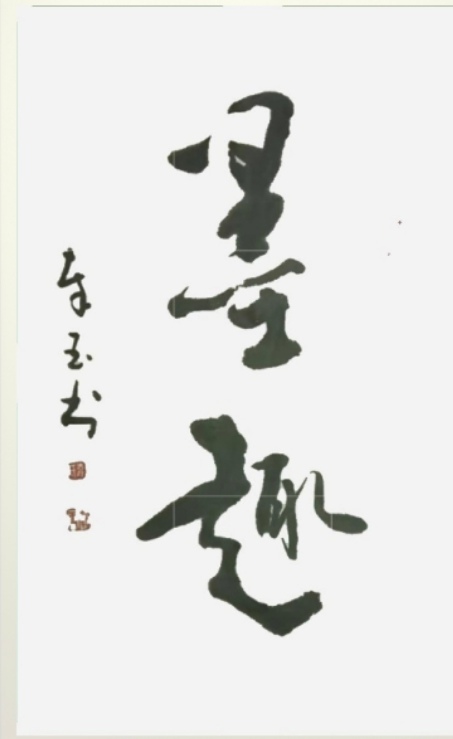 墨趣
玉书